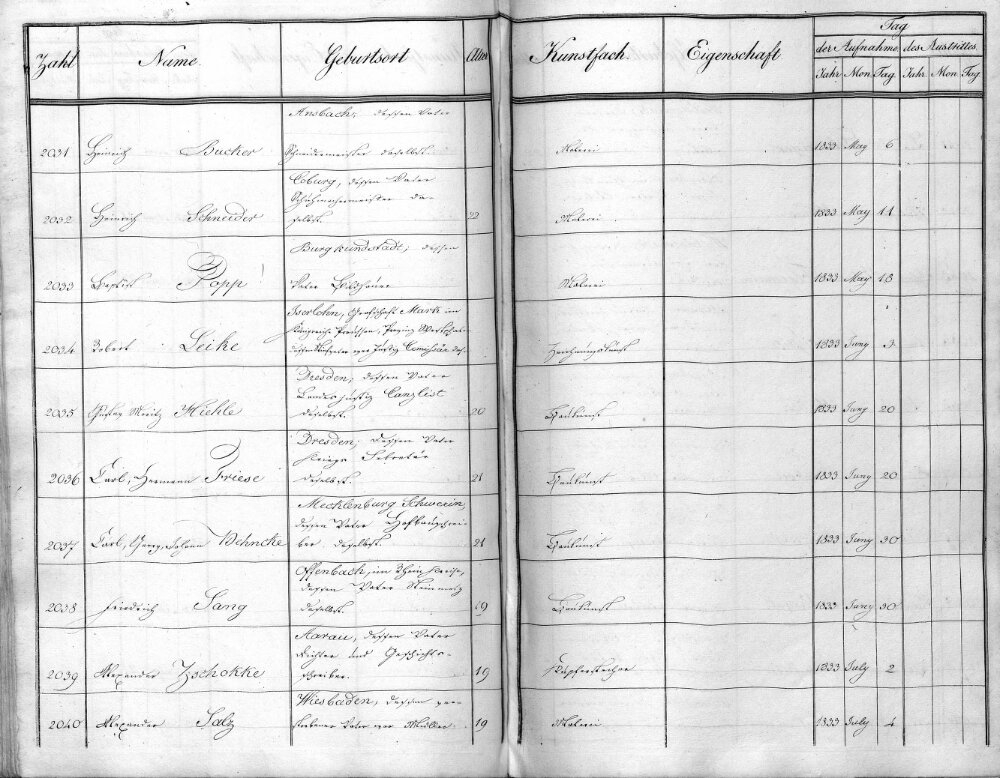 Zahl Name Geburtsort Alter Kunstfach. Eigenschaft Tag
der Aufnahme des Austrittes.
Jahr Mon Tag Jahr Mon Tag
Ansbach, dessen Vater
2031 Heinrich Bucker Schneidermeister daselbst. Malerei 1833 May 6
Coburg, dessen Vater
Schuhmachermeister da-
2032 Heinrich Schneider selbst. 22 Malerei 1833 May 11
Burgkundstadt, dessen
2033 Popp Vater Bildhauer Malerei 1833 May 18
Iserlohn, Grafschaft Mark im
Königreich Preußen, Provinz Westphal.
2034 Robert Leike dessen Vater Justiz Comißär das. Zeichnungskunst 1833 Juny 3
Dresden, dessen Vater
Landes justiz Canzlist
2035 Gustav Moritz Hiehle daselbst. 20 Baukunst 1833 Juny 20
Dresden, dessen Vater
Kriegs Sekretär
2036 Carl, Hermann Friese daselbst. 21 Baukunst 1833 Juny 20
Mecklenburg Schwerin,
dessen Vater Hofbauschrei-
2037 Carl, Georg, Johann Behncke ber daselbst. 21 Baukunst 1833 Juny 30
Offenbach, im Rheinkreise,
dessen Vater Steinmetz
2038 Friedrich Sang daselbst. 19 Baukunst 1833 Juny 30
Aarau, dessen Vater
Dichter und Geschichts-
2039 Alexander Zschokke schreiber. 19 Kupferstecher 1833 July 2
Wiesbaden, dessen ver-
2040 Alexander Salz storbener Vater war Müller 19 Malerei 1833 July 4